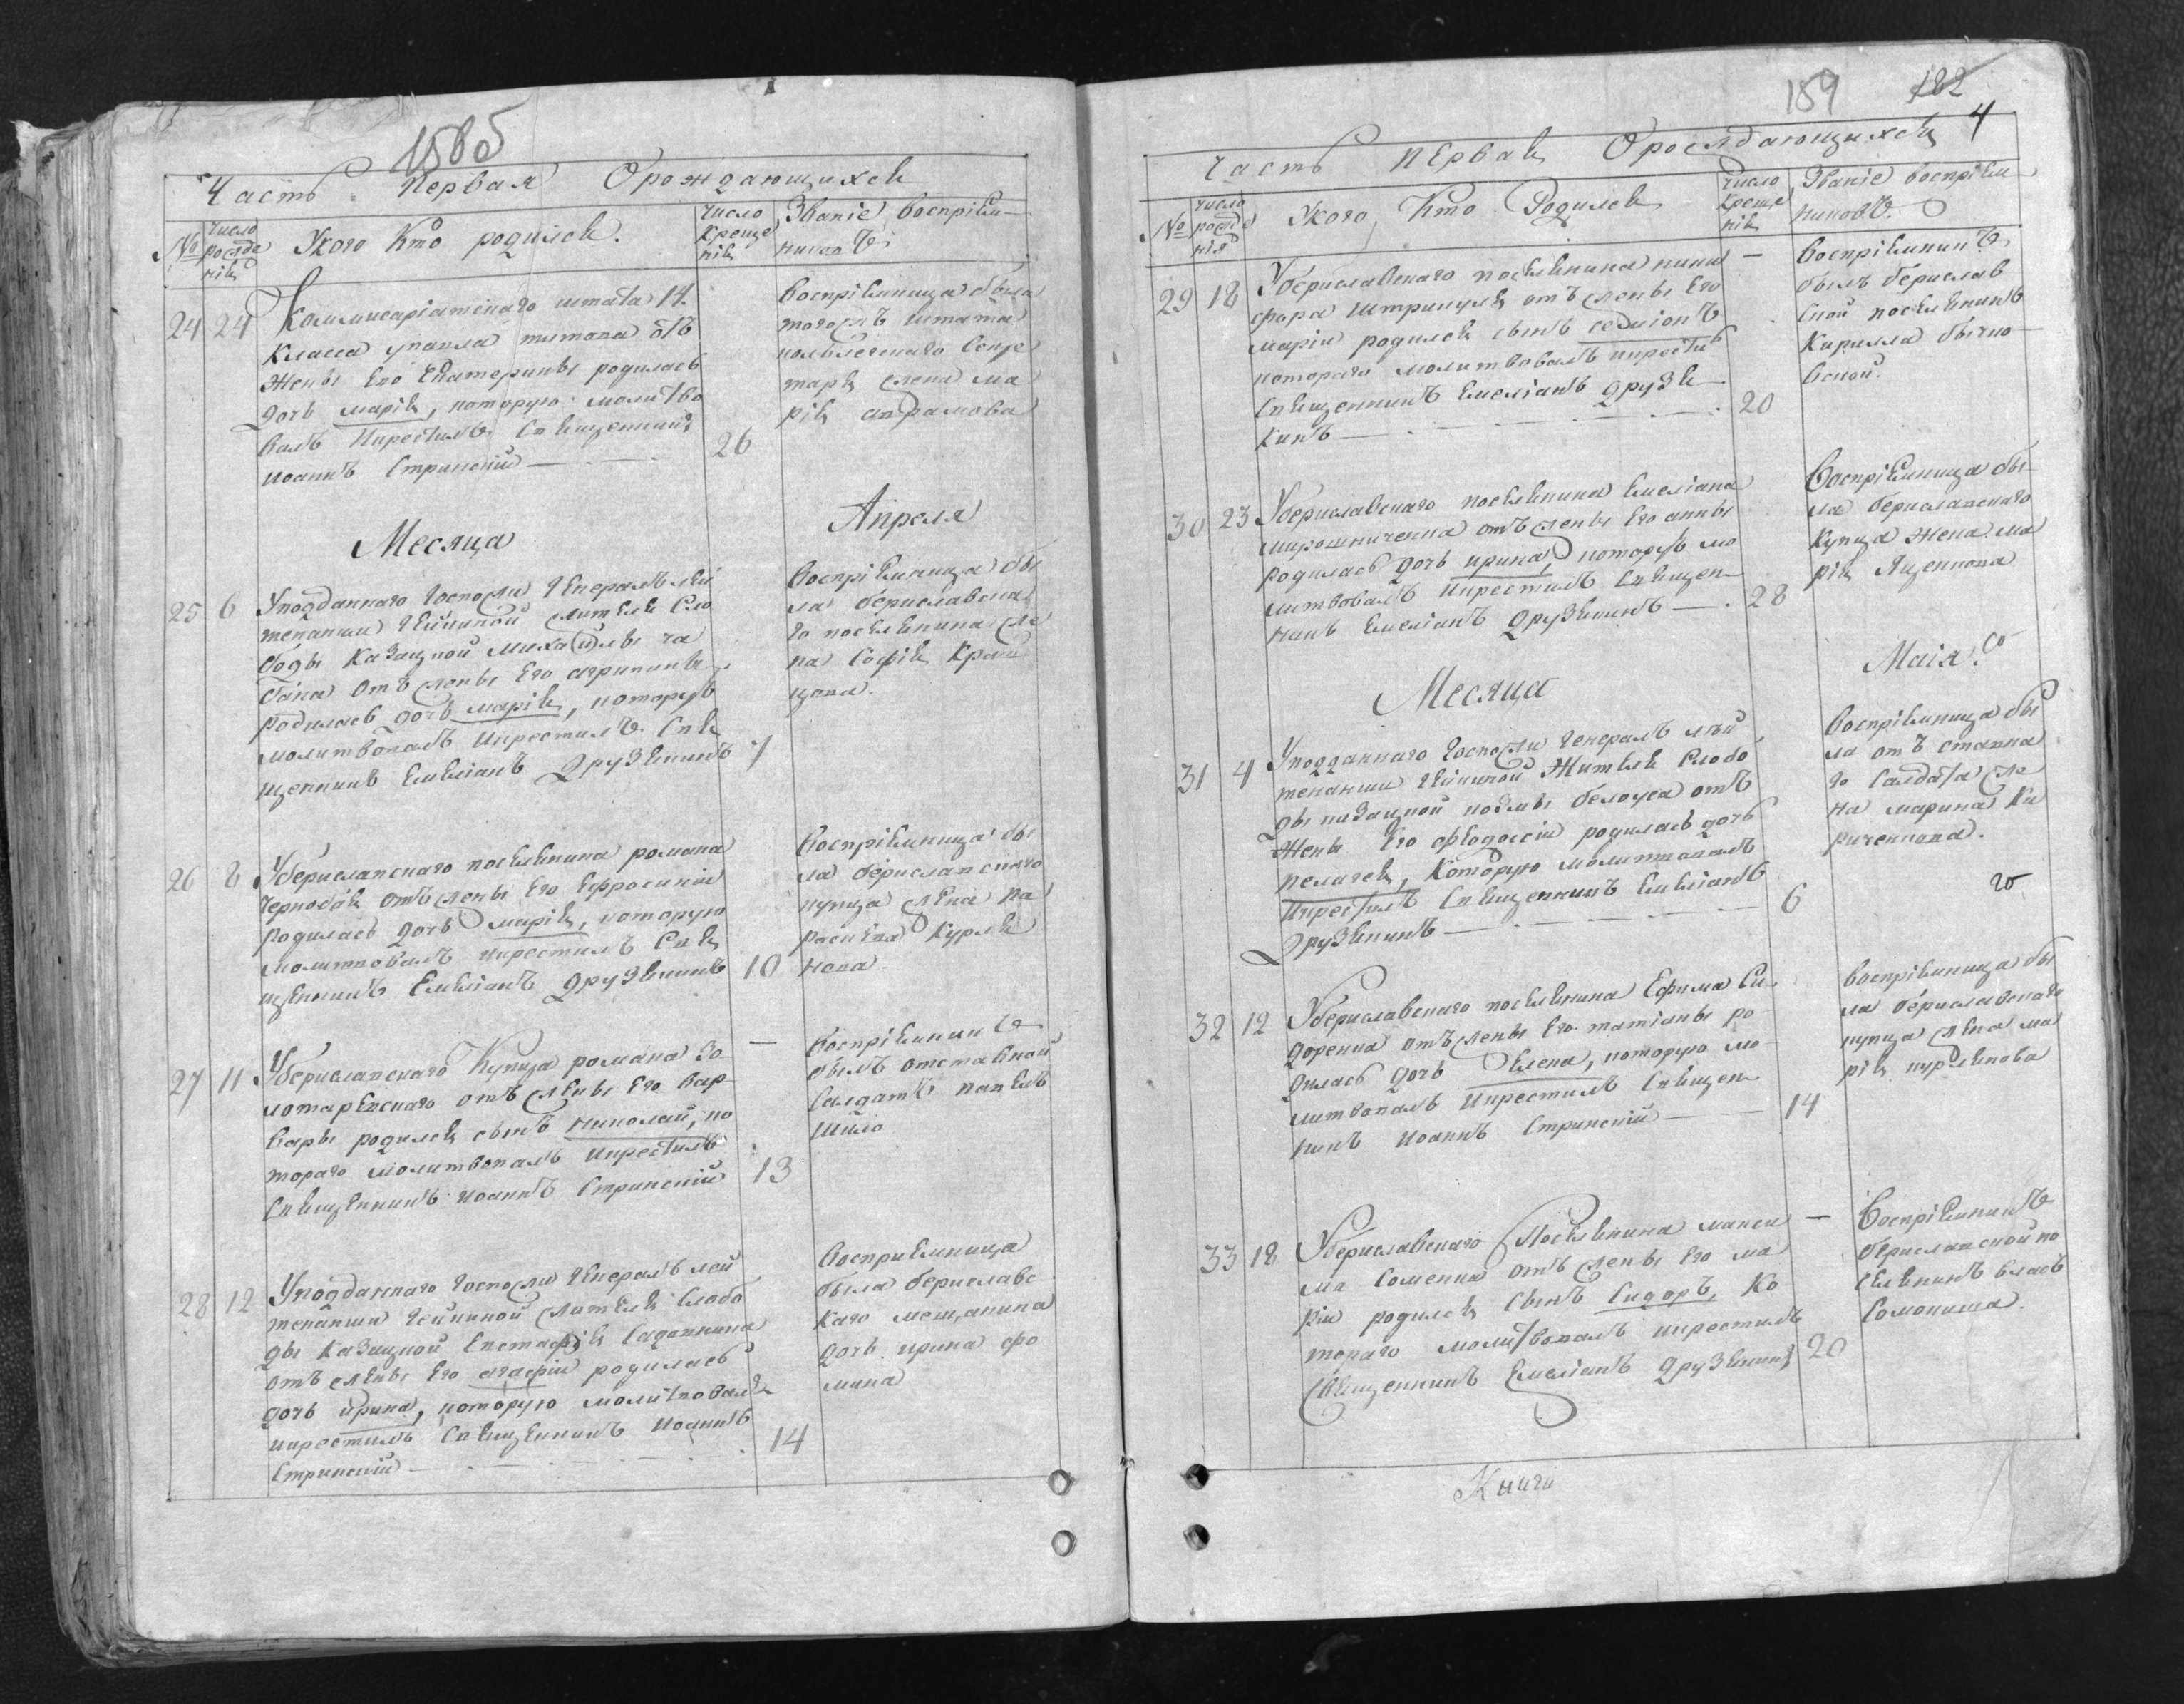 158об
Часть Первая О рождающихся
№
число рожде нія
У кого кто родился.
число креще нія
Званіе воспріем никовъ
24 24 Коммисаріатскаго штата 14.
класса у павла титова отъ
жены его Екатерины родилась
дочь марія, которую молитво
валъ икрестилъ Священникъ
иоаннъ Стринскій 26
воспріемница была
тогожъ штата
полвъ секре
таря жена ма
рія аврамова
Месяца Апреля
25 6 Уподданнаго госпожи генералъ лей
тенантши гейкиной жителя Сло
боды Казацкой михайлы ча
бана отъ жены его агрипины
родилась дочь марія, которую
молитвовалъ икрестилъ Свя
щенникъ Емеліанъ Друзякинъ 7
воспріемница бы
ла бериславска
го поселянина же
на Софія Крав
цова.
26 8 Убериславскаго поселянина романа
чернобая отъ жены его Ефросиніи
родилась дочь марія, которую
молитвовалъ икрестилъ Свя
щенникъ Емеліанъ Друзякинъ 10
воспріемница бы
ла бериславскаго
купца жена Па
раскева Куреля
нова
27 11 Убериславскаго Купца романа Зо
лотаревскаго отъ жены его вар
вары родился сынъ николай, ко
тораго молитвовалъ икрестилъ
Священникъ иоаннъ Стринскій 13
воспріемникъ
былъ отставной
Салдатъ павелъ
Шило
28 12 Уподданнаго госпожи генералъ лей
тенантши гейкиной жителя Слобо
ды Казацкой Евстафія Садовника
отъ жены его агафіи родилась
дочь ирина, которую молитвовалъ
икрестилъ Священникъ иоаннъ
Стринскій 14
восприемница
была бериславс
каго мещанина
дочь ирина фо
мина
159 122
4
часть первая О рождающихся
№
число рожде нія
У кого, Кто Родился
число креще нія
Званіе воспріем никовъ.
29 18 Убериславскаго поселянина ники
фора Штрикуля отъ жены его
маріи родился сынъ Семіонъ
котораго молитвовалъ икрестилъ
Священникъ Емеліанъ друзя
кинъ 20
воспріемникъ
былъ берислав
ской поселянинъ
Кирилла быч
вской.
30 23 Убериславскаго поселянина Емеліана
мирошниченка отъ жены его анны
родилась дочь ирина, которую мо
литвовалъ икрестилъ Священ
никъ Емеліанъ Друзякинъ 28
Воспріемница бы
ла бериславскаго
купца жена ма
рія Яценкова
Месяца Маія.
31 4 Уподданнаго госпожи генералъ лей
тенантши гейкиной Жителя Слобо
ды казацкой козмы белоуса отъ
жены его феодоссіи родилась дочь
пелагея, Которую молитвовалъ
икрестилъ Священникъ Емеліанъ
Друзякинъ 6
воспріемница бы
ла отъ ставна
го Салдата же
на марина Ки
риченкова.
32 12 Убериславскаго поселянина Ефима Си
доренка отъ жены его татіаны ро
дилась дочь Елена, которую мо
литвовалъ икрестилъ Священ
никъ иоаннъ Стринскій 14
воспріемница бы
ла бериславскаго
купца жена ма
рія курелянова
33 18 Убериславскаго Поселянина макси
ма Соменка отъ жены его ма
ріи родился Сынъ Сидоръ, Ко
тораго молитвовалъ икрестилъ
Священникъ Емеліанъ друзякинъ 20
Воспріемникъ
бериславской по
селянинъ власъ
Соломаха.
Книги